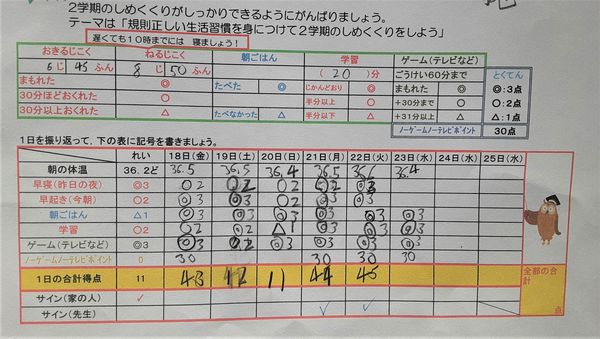 2学期のしめくくりがしっかりできるようにがんばりましょう。
テーマは「規則正しい生活習慣を身につけて2学期のしめくくりをしよう」
遅くても10時までには 寝ましょう！
おきるじこく ねるじこく 朝ごはん 学習 ゲーム(テレビなど)
6じ 45ふん 8じ 50ふん (20)分 ごうけい60分まで とくてん
まもれた ◎ ◎ たべた ◎ じかんどおり ◎ まもれた ◎ ◎:3点
30分ほどおくれた ○ ○ 半分以上 ○ +30分まで ○ ○:2点
30分以上おくれた △ △ たべなかった △ 半分以下 △ +31分以上 △ △:1点
ノーゲームノーテレビポイント 30点
1日を振り返って、下の表に記号を書きましょう。
れい 18日(金) 19日(土) 20日(日) 21日(月) 22日(火) 23日(水) 24日(水) 25日(水)
朝の体温 36.2ど 36.5 36.5 36.4 36.5 36.6 36.4
早寝(昨日の夜) ◎3 ○2 ○2 ○2
早起き(今朝) ○2 ◎3 ◎3 ◎3 ◎3 ◎3 ◎3
朝ごはん △1 ◎3 ◎3 ◎3 ◎3 ◎3 ◎3
学習 ○2 ○2 ○2 △1 ◎3 ◎3 ◎3
ゲーム(テレビなど) ◎3 ◎3 ◎3 ◎3 ◎3 ◎3
ノーゲームノーテレビポイント 0 30 30 30 30
1日の合計得点 11 43 12 11 44 45
全部の合計
点
サイン(家の人) ✓
サイン(先生) ✓ ✓